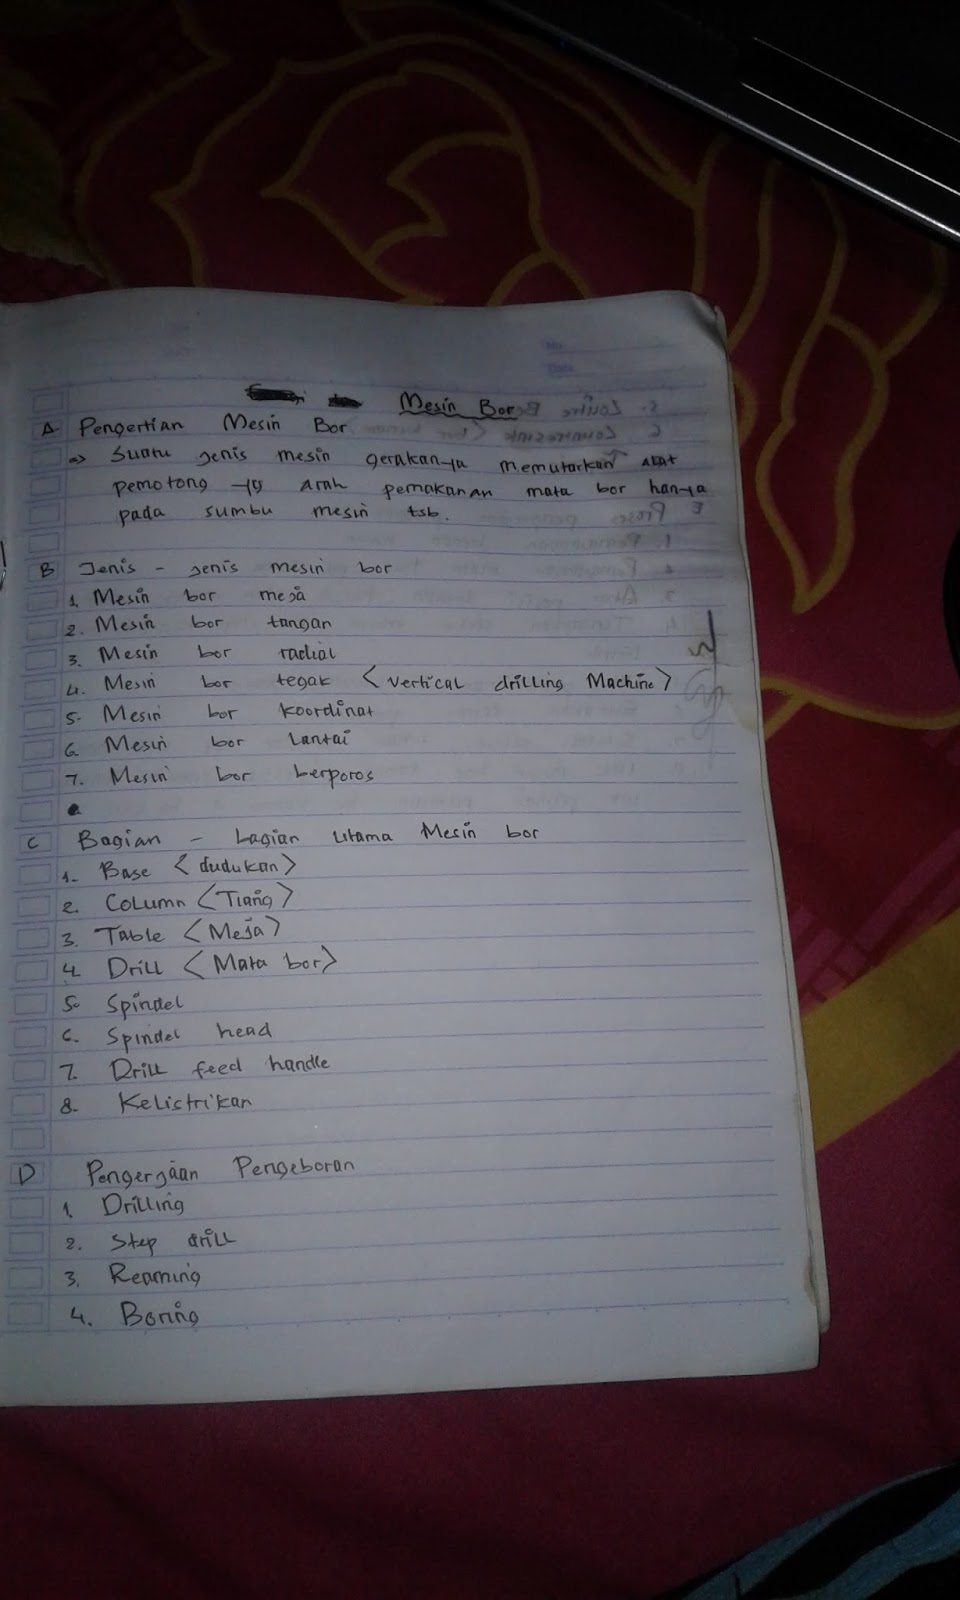 Mesin Bor
A Pengertian Mesin Bor
=> Suatu jenis mesin gerakanya memutarkan alat
pemotong yg arah pemakanan mata bor hanya
pada sumbu mesin tsb.
B Jenis - jenis mesin bor
1. Mesin bor meja
2. Mesin bor tangan
3. Mesin bor radial
4. Mesin bor tegak <vertical drilling Machine>
5. Mesin bor koordinat
6. Mesin bor Lantai
7. Mesin bor berporos
C Bagian - bagian utama Mesin bor
1. Base <dudukan>
2. Column <Tiang>
3. Table <Meja>
4. Drill <Mata bor>
5. Spindel
6. Spindel head
7. Drill feed handle
8. Kelistrikan
D Pengerjaan Pengeboran
1. Drilling
2. Step drill
3. Reaming
4. Boring